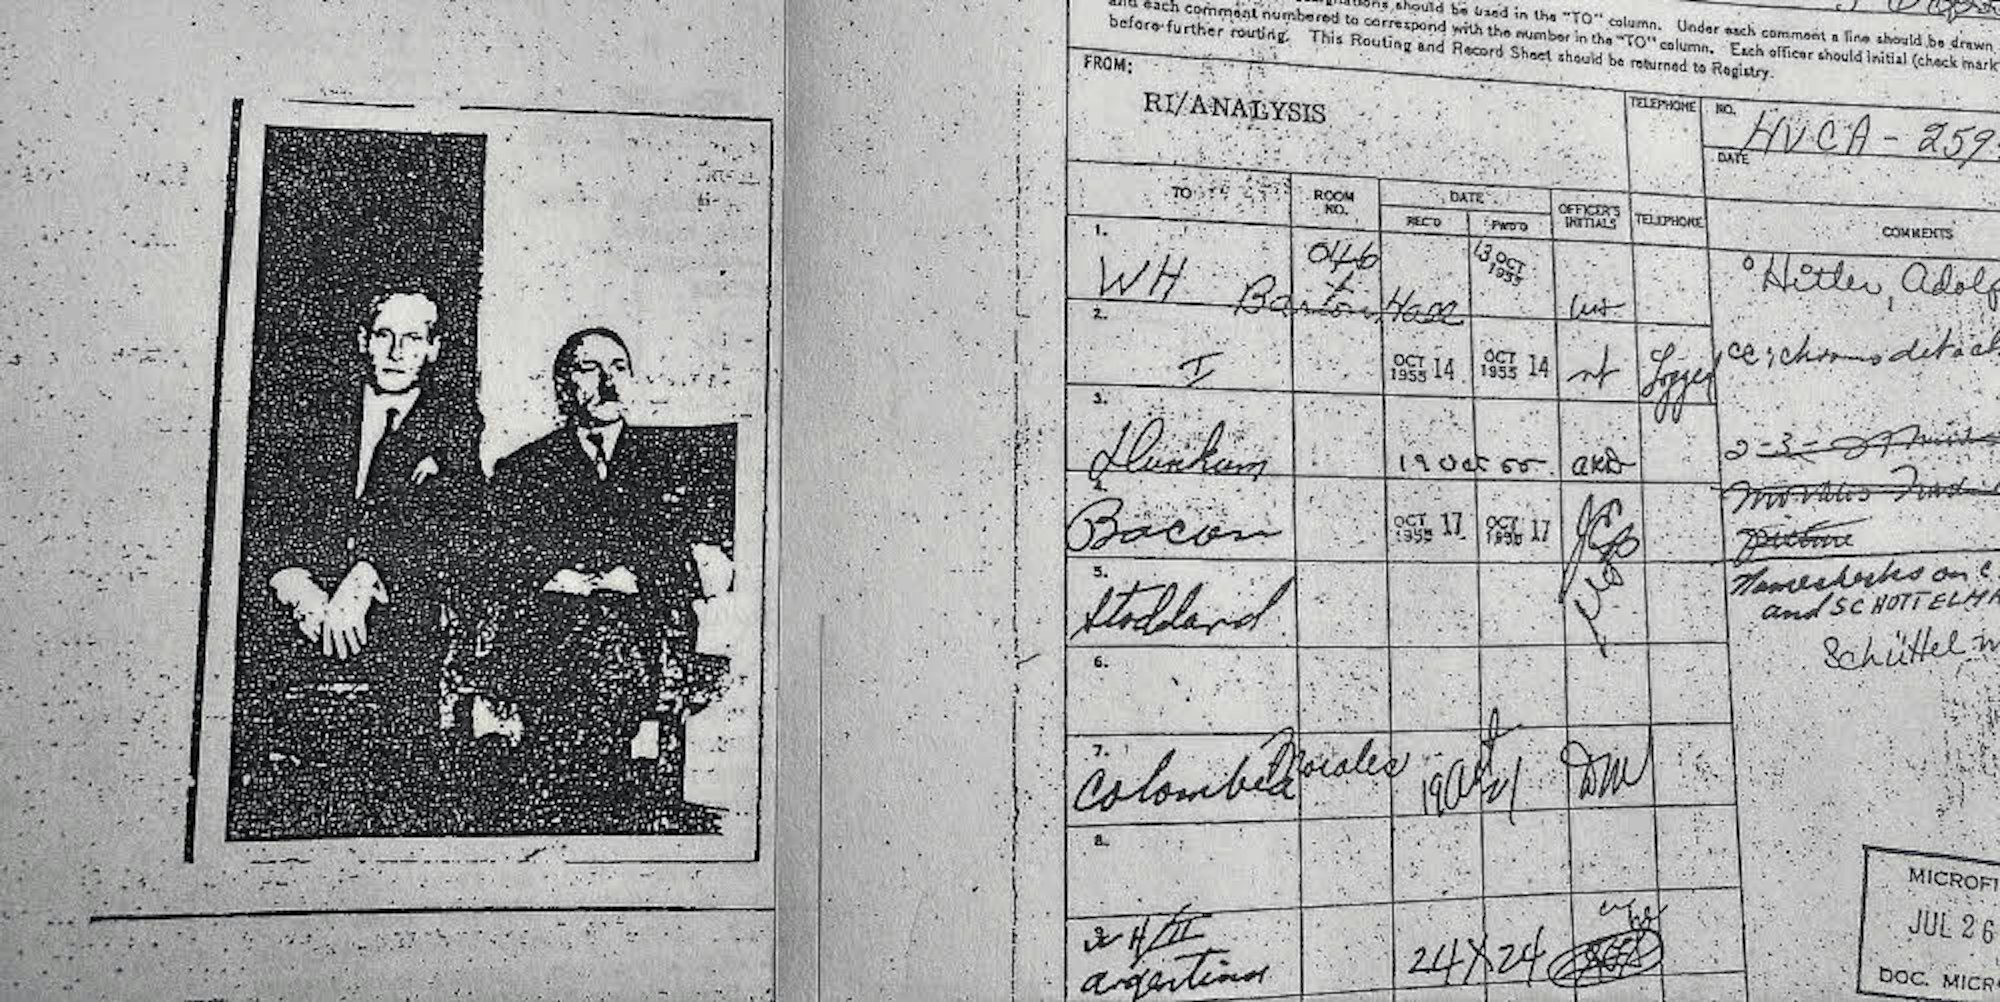 should be used in the "TO" column. Under each comment a line should be drawn
and each comment numbered to correspond with the number in the "TO" column. Each officer should initial (check mark
before further routing. This Routing and Record Sheet should be returned to Registry.
FROM:
RI/ANALYSIS
TELEPHONE
NO.
HVCA - 259
DATE
TO
ROOM NO.
DATE
OFFICER'S INITIALS
TELEPHONE
COMMENTS
REC'D
FWD'D
1.
WH
046
Barton Hall
13 OCT 1955
Hitler, Adolf
2.
I
OCT 14 1955
OCT 14 1955
cc;
3.
Dunham
19 Oct 55
AKD
2-3-
4.
Bacon
OCT 17 1955
OCT 17
picture
5.
Stoddard
Namechecks on C
and SCHOTTELM
Schüttelm
6.
7.
Colombia
Morales
19 Oct
DM
8.
WH/III
Argentina
24 X 24
MICROFI
JUL 26
DOC. MICR